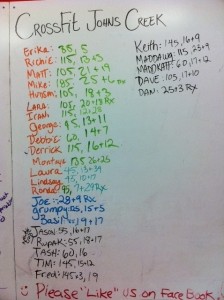 CROSSFIT JOHNS CREEK
Erika: 85, 5
Richie: 115, 13+3
Matt: 105, 21+19
Mike: 185, 25+6
105, 18+3
Lara: 105, 20+18 Rx
Irah: 115, 12+20
George: 95, 13+11
Debbie: 60, 14+7
Derrick: 115, 16+12
Montay: 135 26+25
Laura: 45, 13+39
Lindsay 45, 10+17
Ronde: 95, 7+29 Rx
Joe: 28+9 Rx
grumpy: 135, 15+5
Basil: 19+17
JASON: 55, 16+17
Rupak: 55, 18+17
TASH: 60, 16
TIM: 145, 15+12
Fred: 145+3, 19
Keith: 145, 16+9
MADDAWG: 115, 23+9
MADDKATT: 60, 17+12
DAVE: 105, 17+10
DAN: 25+3 Rx
Please "Like" us on FaceBook